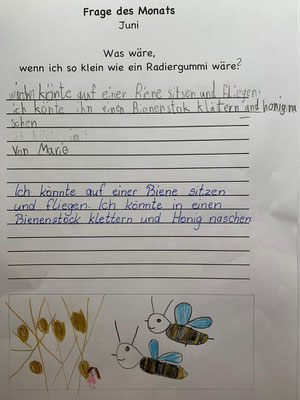 Frage des Monats
Juni
Was wäre,
wenn ich so klein wie ein Radiergummi wäre?
ich könte auf einer Biene sitzen und fliegen.
ich könte ihn einen Bienenstok klätern und honig na
schen
in
Von Marie
Ich könnte auf einer Biene sitzen
und fliegen. Ich könnte in einen
Bienenstock klettern und Honig naschen